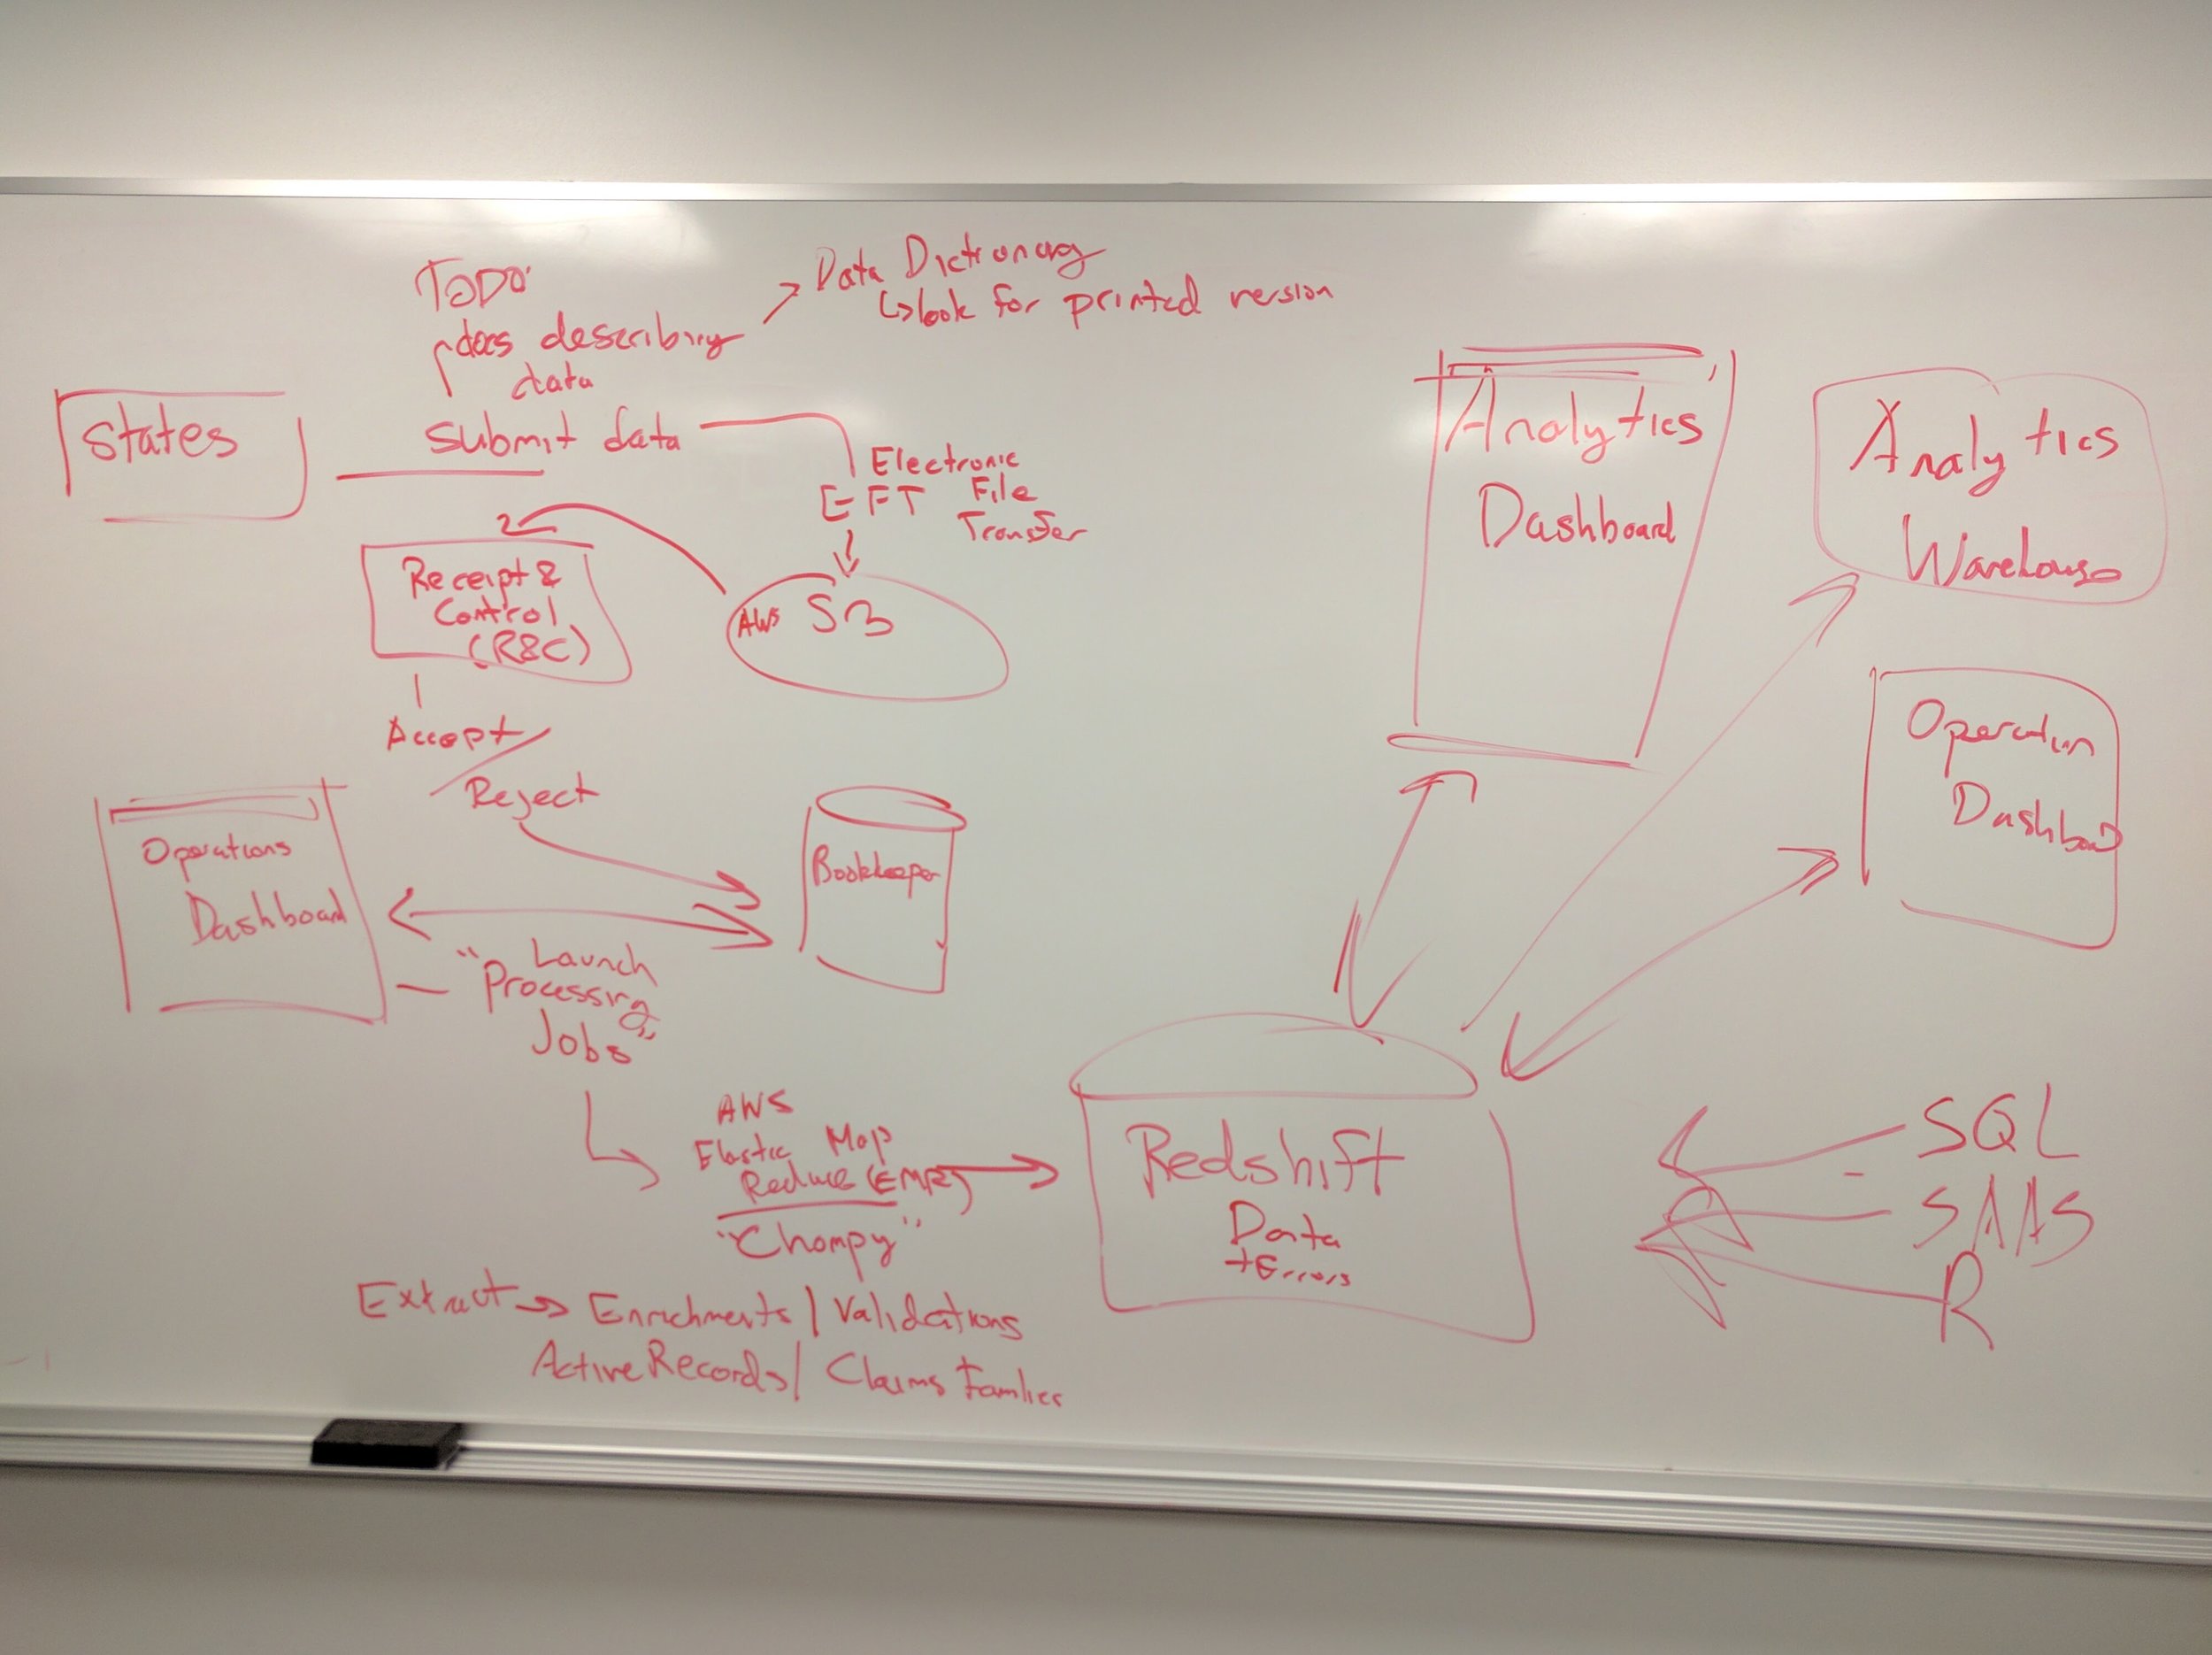 TODO:
docs describing
data
Data Dictionary
↳look for printed version
States
submit data
Electronic
EFT File
Transfer
AWS S3
Receipt &
Control
(R&C)
Accept
Reject
Operations
Dashboard
Bookkeeper
"Launch
Processing
Jobs"
AWS
Elastic Map
Reduce (EMR)
"Chompy"
Extract → Enrichments / Validations
Active Records / Claims Families
Redshift
Data
+Errors
Analytics
Dashboard
Analytics
Warehouse
Operation
Dashboard
SQL
- SAAS
R